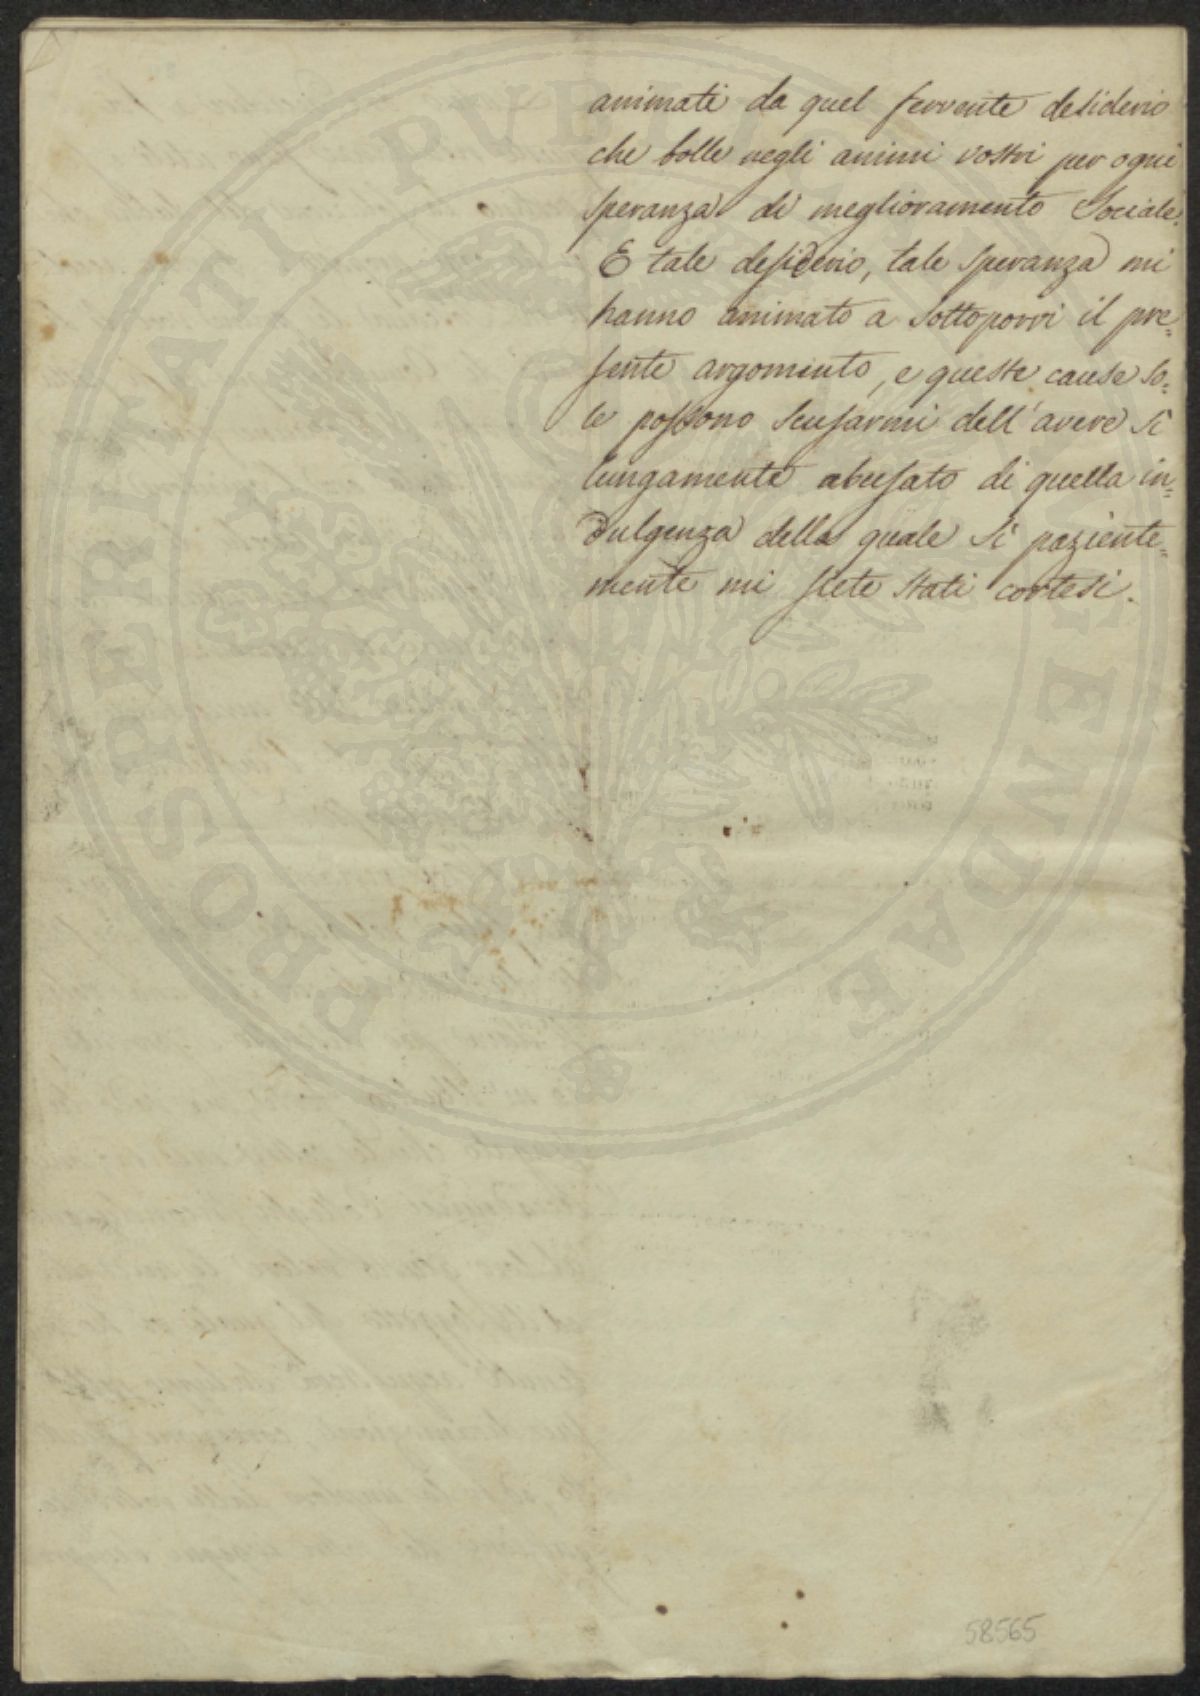 animati da quel fervente desiderio
che bolle negli animi vostri per ogni
speranza di meglioramento Sociale.
E tale desiderio, tale speranza mi
hanno animato a sottoporvi il pre=
sente argomento, e queste cause so=
le possono scusarmi dell'avere sì
lungamente abusato di quella in=
dulgenza della quale sì paziente=
mente mi siete stati cortesi.
PROSPERITATI PUBLICAE AUGENDAE
58565